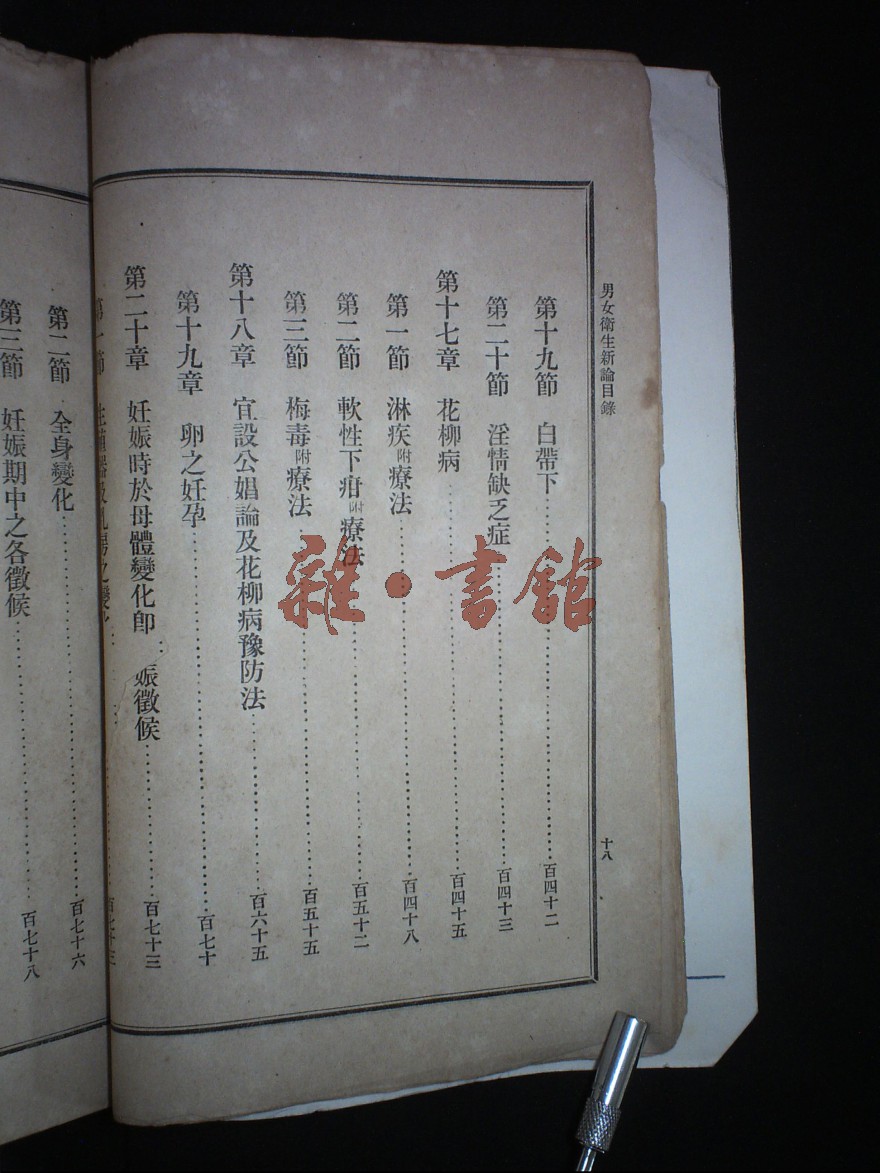 男女衛生新論目錄
十八
第十九節 白帶下……百四十二
第二十節 淫情缺乏症……百四十三
第十七章 花柳病……百四十五
第一節 淋疾附療法……百四十八
第二節 軟性下疳附療法……百五十二
第三節 梅毒附療法……百五十五
第十八章 宜設公娼論及花柳病豫防法……百六十五
第十九章 卵之妊孕……百七十
第二十章 妊娠時於母體變化即 娠徵候……百七十三
第一節
第二節 全身變化……百七十六
第三節 妊娠期中之各徵候……百七十八
雜·書館